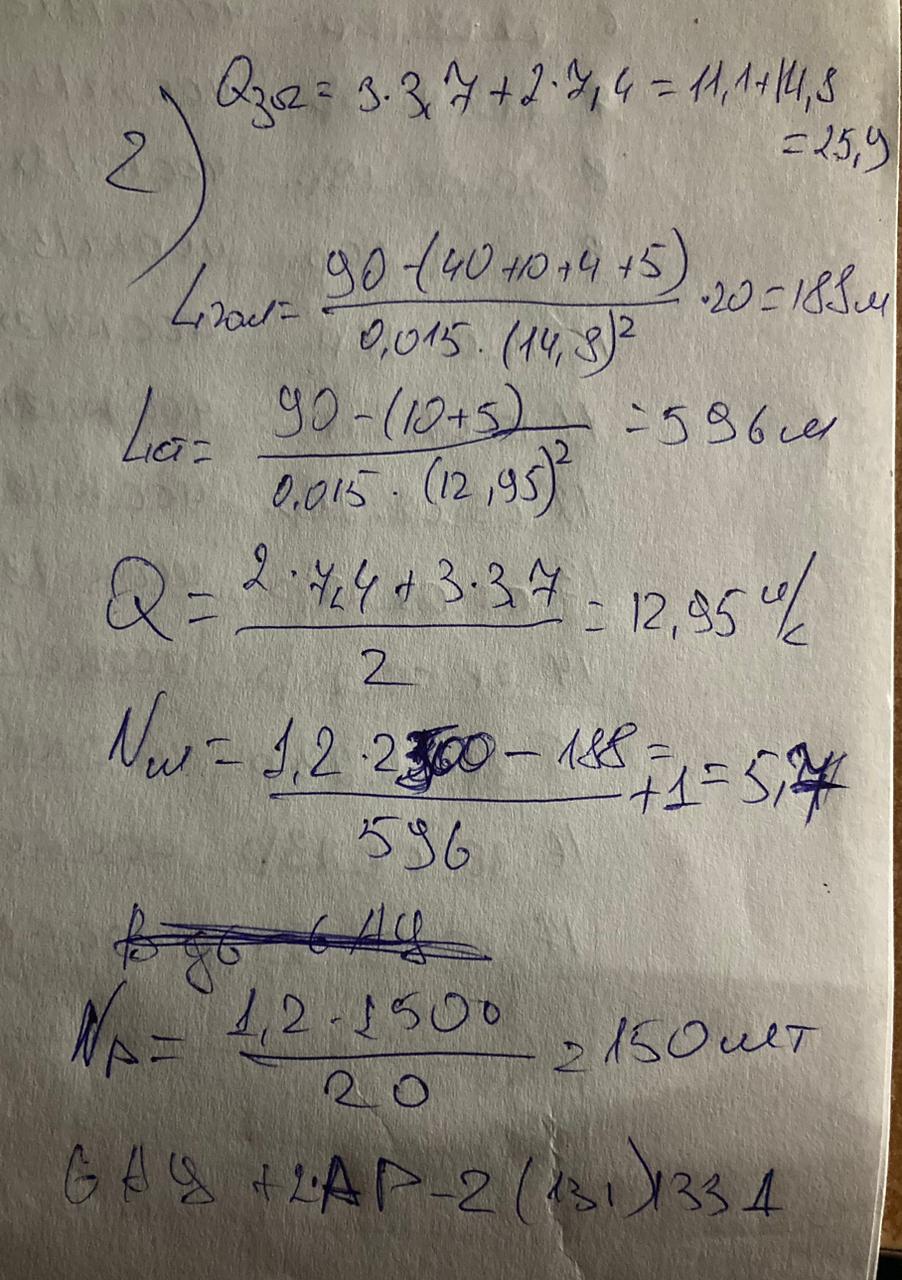 2) Qзов = 3·3,7 + 2·7,4 = 11,1 + 14,8
= 25,9
Lгол = 90 - (40 + 10 + 4 + 5) / 0,015 · (14,8)² · 20 = 188 м
Lст = 90 - (10 + 5) / 0,015 · (12,95)² = 596 м
Q = 2·7,4 + 3·3,7 / 2 = 12,95 л/с
Nм = 1,2 · 2300 - 188 / 596 + 1 = 5,
Nр = 1,2 · 2500 / 20 = 150 шт
6 АЦ + 2 АР - 2 (131) 133 1